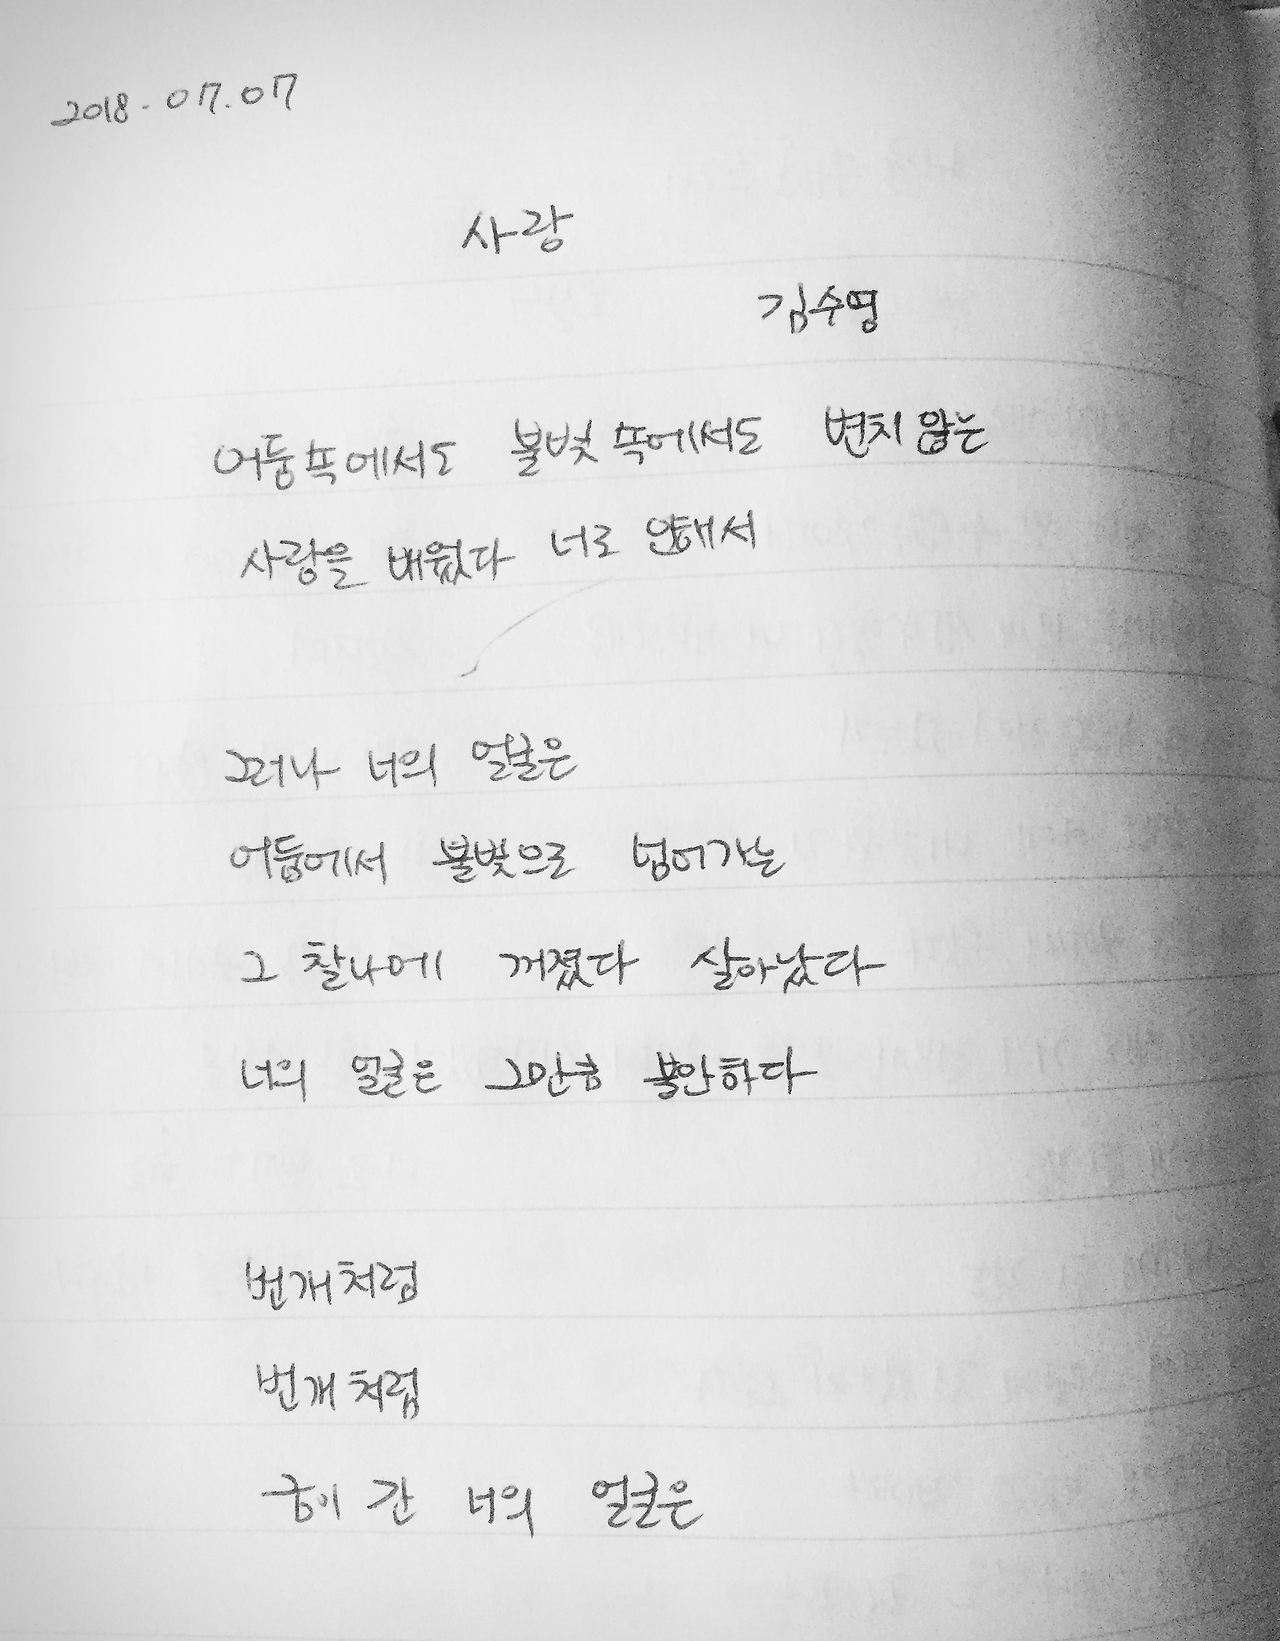 2018.07.07
사랑
김수영
어둠속에서도 불빛속에서도 변치않는
사랑을 배웠다 너로 인해서
그러나 너의 얼굴은
어둠에서 불빛으로 넘어가는
그 찰나에 꺼졌다 살아났다
너의 얼굴은 그만큼 불안하다
번개처럼
번개처럼
금이 간 너의 얼굴은